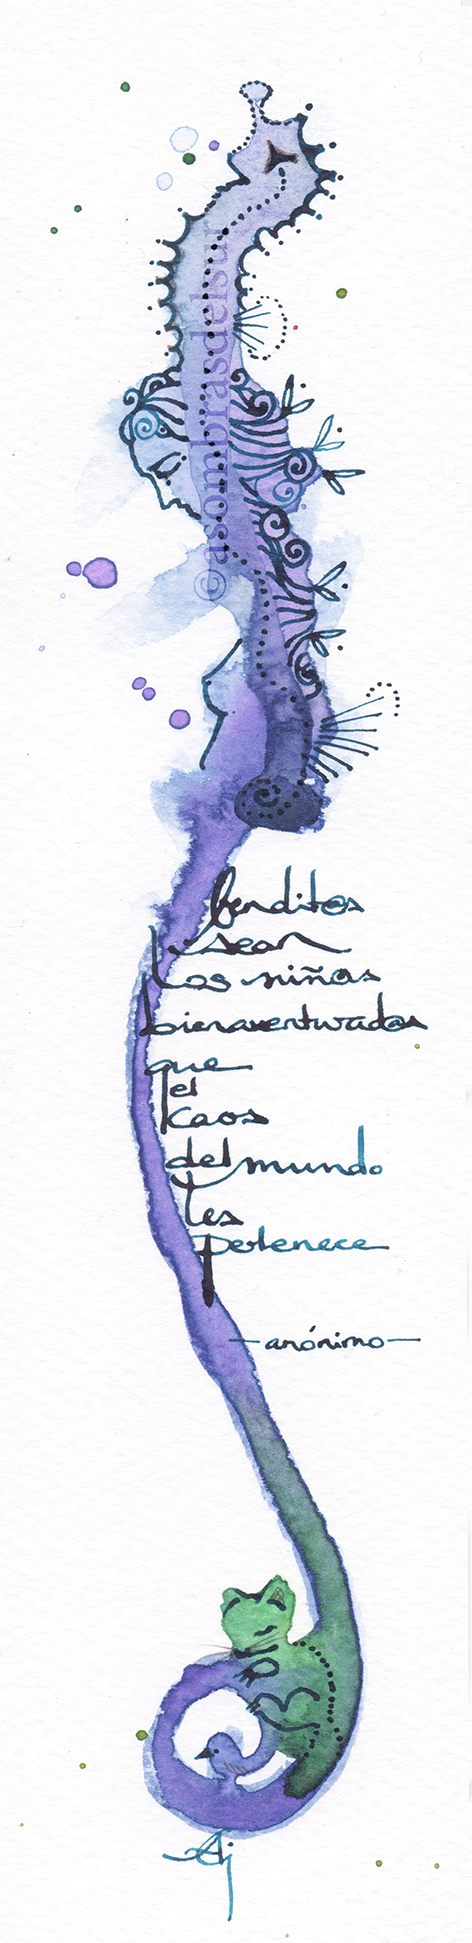 ©asombrasdelsur
bendit@s
sean
los niñ@s
bienaventurad@s
que
el
kaos
del mundo
les
pertenece
—anónimo—